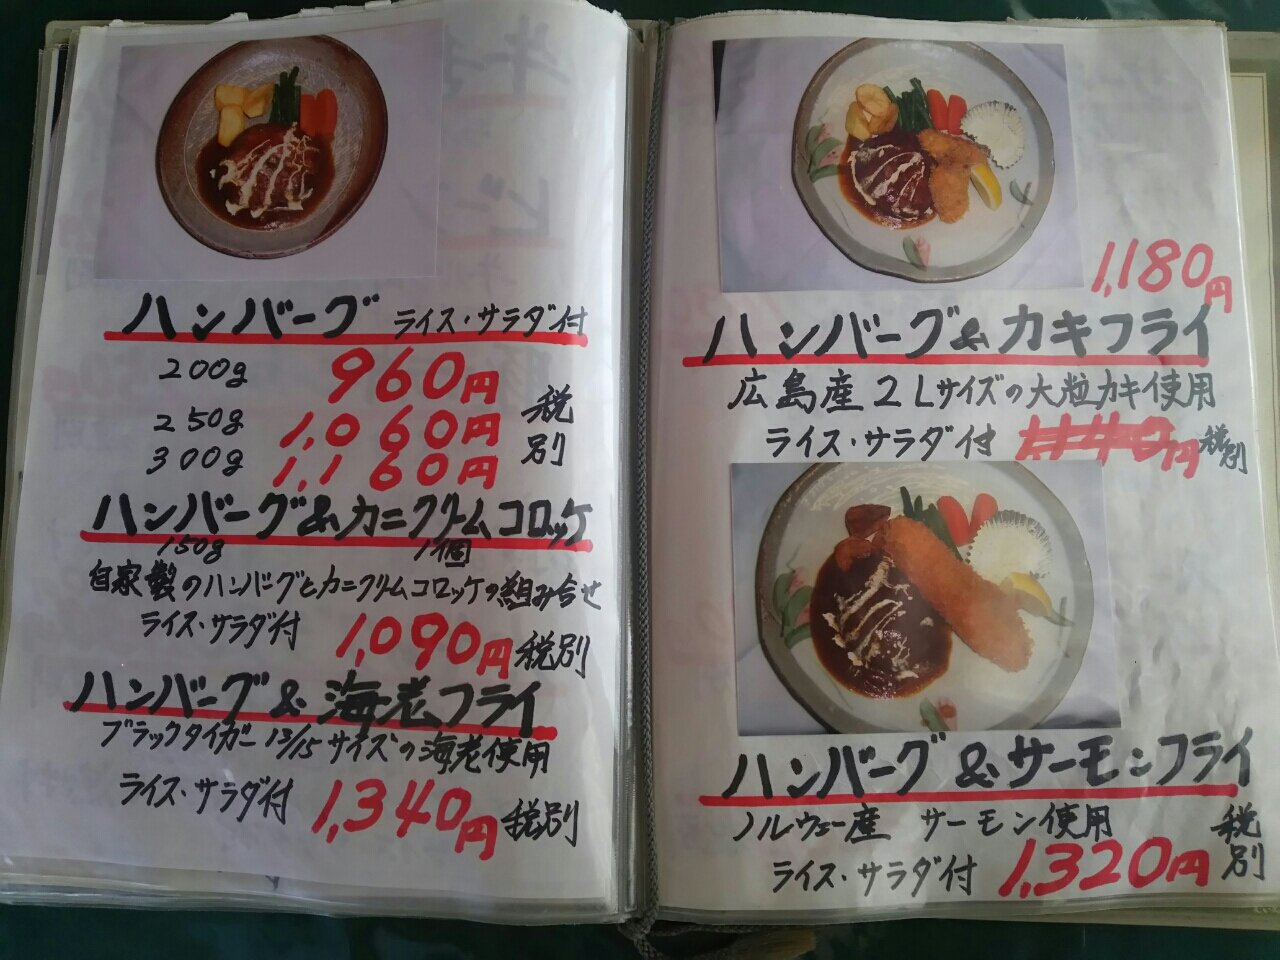 ハンバーグ ライス・サラダ付
200g 960円
250g 1,060円 税別
300g 1,160円
ハンバーグ&カニクリームコロッケ
150g 1個
自家製のハンバーグとカニクリームコロッケの組み合せ
ライス・サラダ付 1,090円 税別
ハンバーグ&海老フライ
ブラックタイガー13/15サイズの海老使用
ライス・サラダ付 1,340円 税別
1,180円
ハンバーグ&カキフライ
広島産2Lサイズの大粒カキ使用
ライス・サラダ付 円 税別
ハンバーグ&サーモンフライ
ノルウェー産 サーモン使用
ライス・サラダ付 1,320円 税別